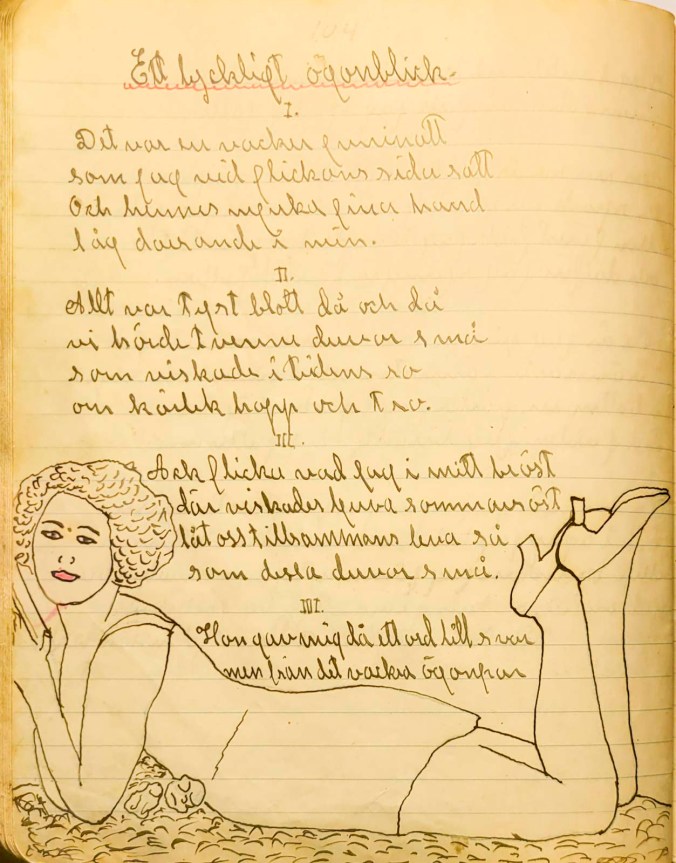 104
Ett lyckligt ögonblick.
I.
Det var en vacker juninatt
som jag vid flickans sida satt
Och hennes mjuka fina hand
låg darrande i min.
II.
Allt var tyst blott då och då
vi hörde tvenne duvor små
som viskade i tidens ro
om kärlek hopp och tro.
III.
Ack flicka vad jag i mitt bröst
där viskades ljuva sommarsöst
låt oss tillsammans leva så
som dessa duvor små.
IIII.
Hon gav mig då ett ord till svar
men från det vackra ögonpar